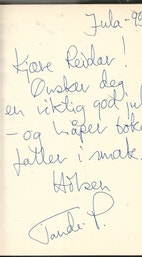 Jula-95
Kjære Reidar!
Ønsker deg
en riktig god jul
- og håper boka
faller i smak.
Hilsen